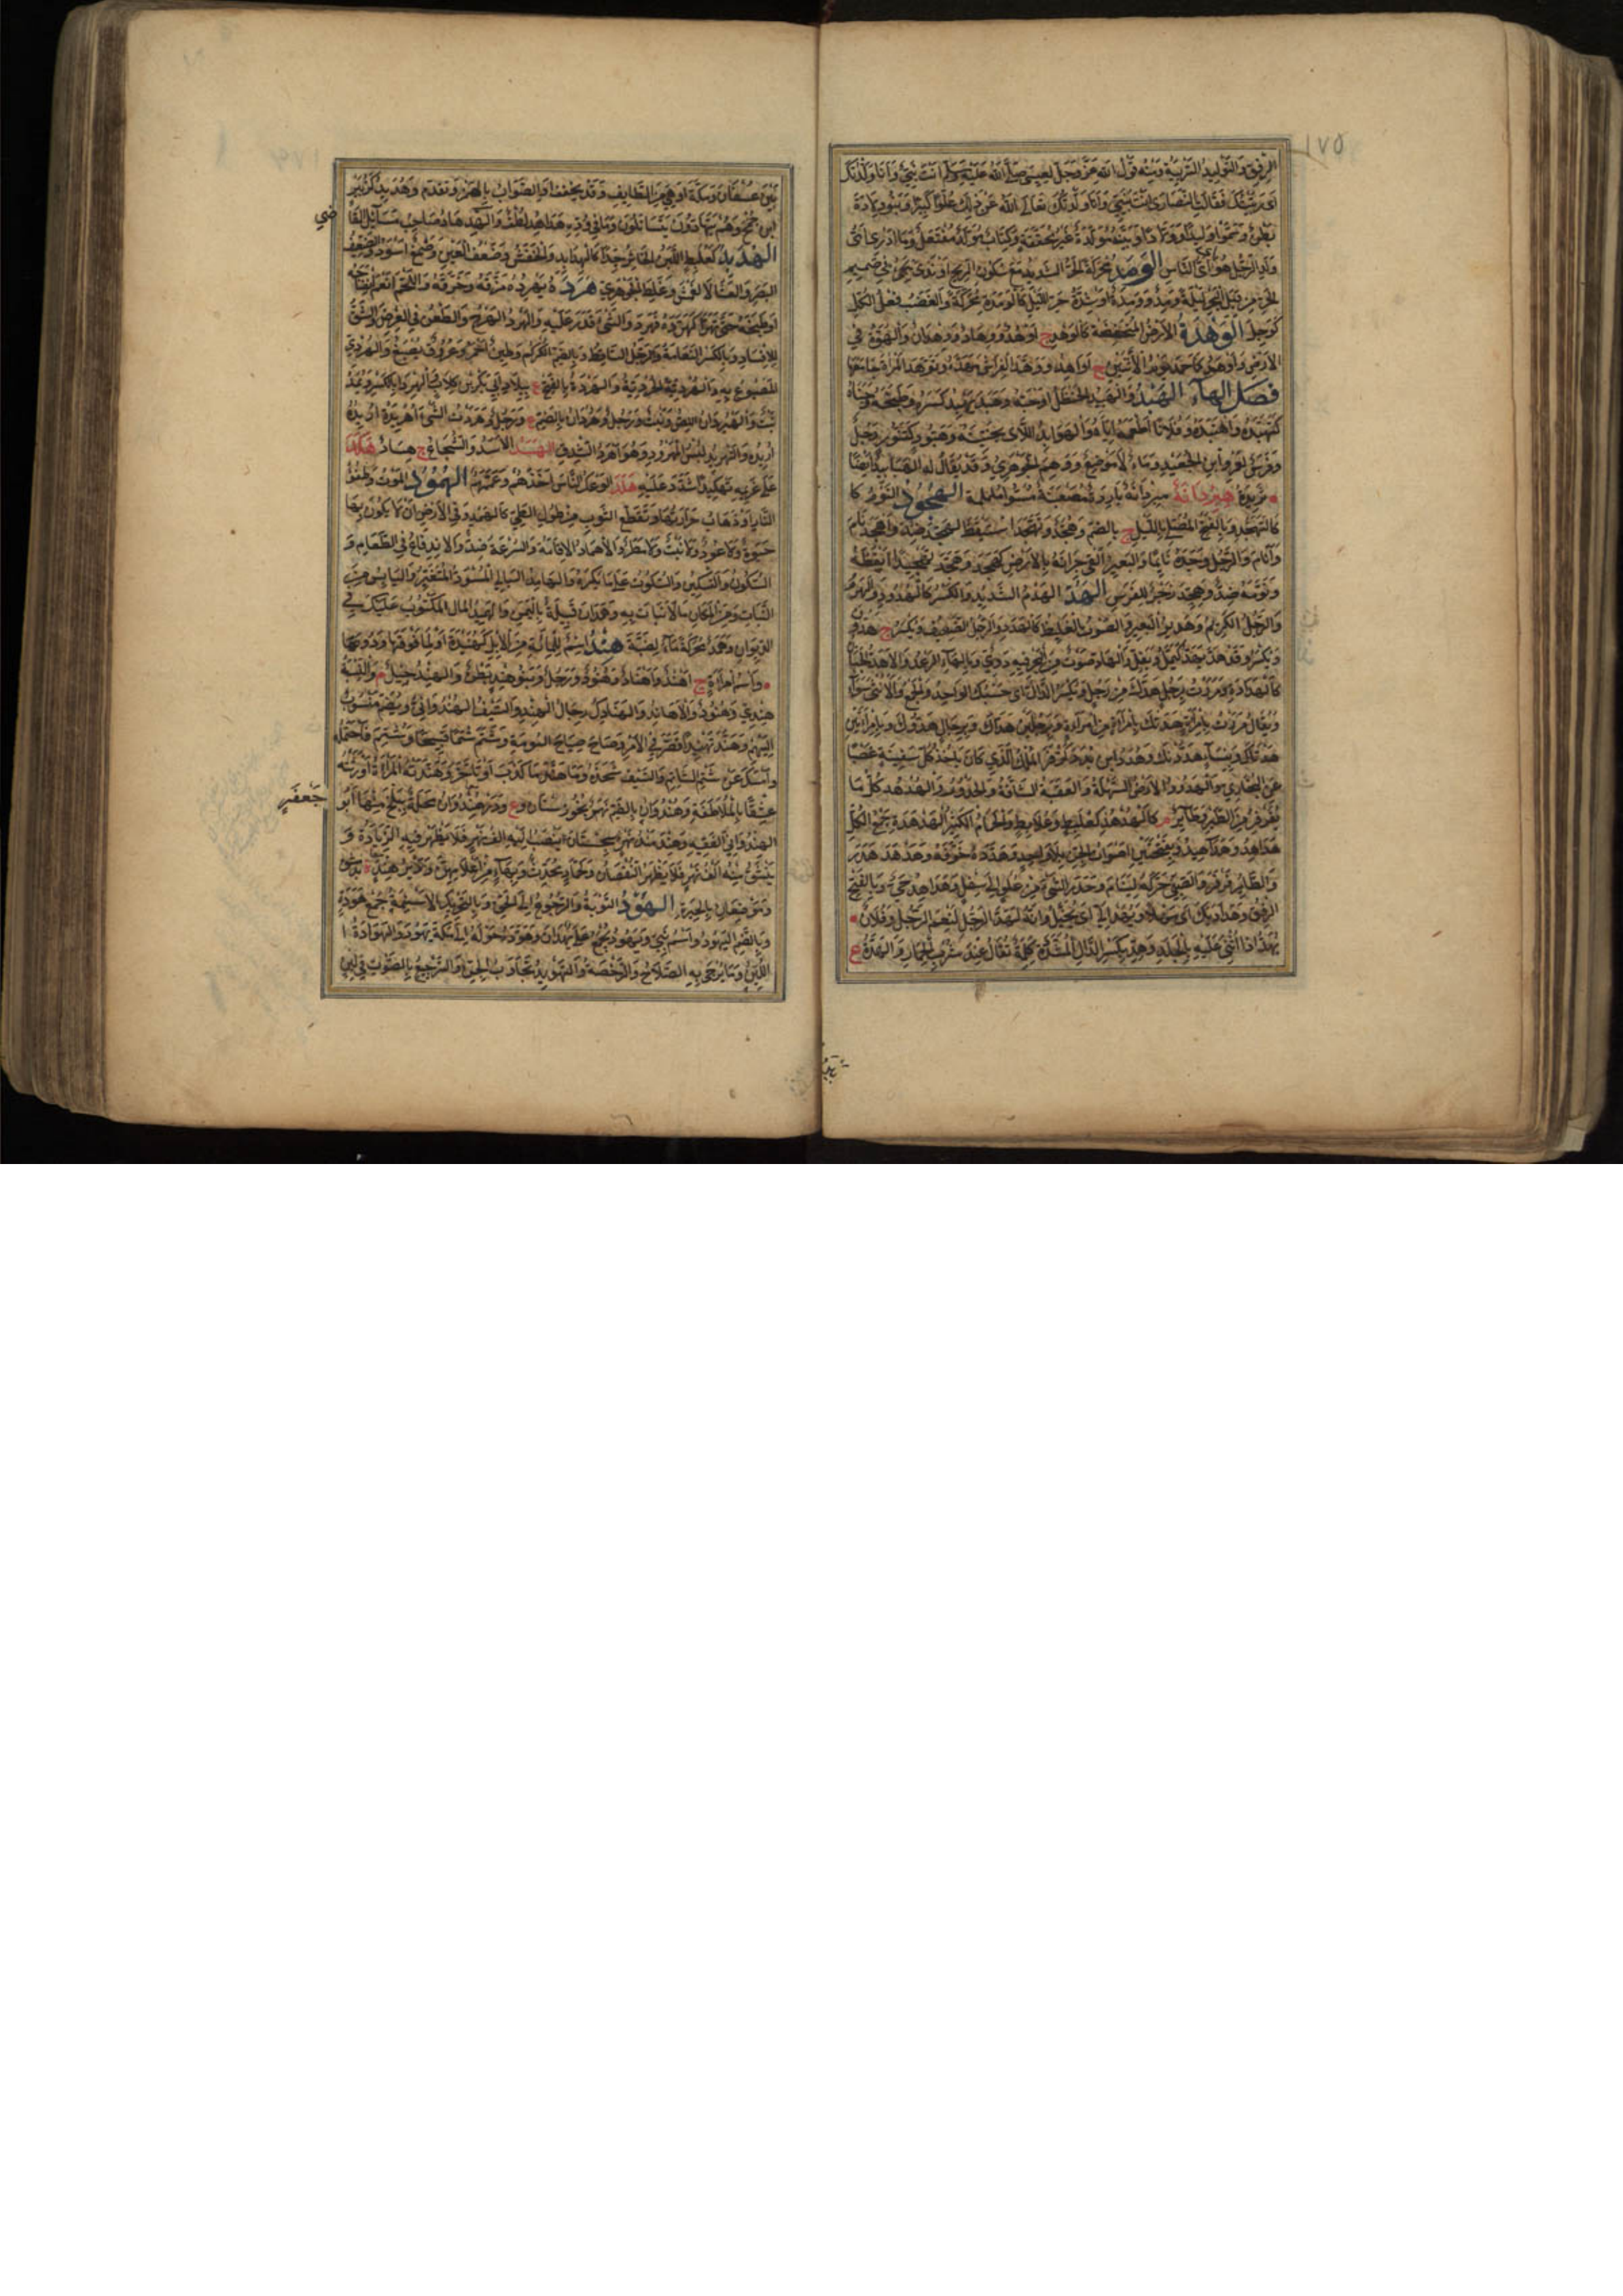 ١٧٥
الرفق والتوليد التربية ومنه قول الله عز وجل لعيسى صلى الله عليه وسلم انت نبيي وانا ولدتك
اى ربيتك فقالت النصارى انت بنيي وانا ولدتك تعالى الله عن ذلك علوا كبيرا وبنو ولادة
بطن وسموا وليدا وولادا وبينة مولدة غير محققة وكتاب مولد مفتعل وما ادرى اى
ولد الرجل هو اى الناس الومد محركة الحر الشديد مع سكون الريح او ندى يجئ فى صميم
الحر من قبل البحر ليلة ومد وومدة او شدة حر الليل كالومدة محركة والغضب فعل الكل
كوجل الوهدة الارض المنخفضة كالوهد ج اوهد ووهاد ووهدان والهوة فى
الارض واوهد كاحمد يوم الاثنين ج اواهد ووهد الفراش مهده وتوهد المراة جامعها
فصل الهاء الهبد والهبيد الحنظل او حبه وهبد يهبد كسره وطبخه وجناه
كتهبده واهتبده وفلانا اطعمه اياه والهوابد اللاى يجتنينه وهبود كتنور رجل
وفرس لعمرو ابن الجعيد وماء لا موضع ووهم الجوهرى وقد يقال له الهبابيد ايضا
ثريدة هبردانة مبردانة باردة مصعنبة مسواة ململمة الهجود النوم كا
كالتهجد وبالفتح المصلى بالليل ج بالضم وهجد وتهجد استيقظ كهجد ضد واهجد نام
وانام والرجل وجده نائما والبعير القى جرانه بالارض كهجد وهجده تهجيدا ايقظه
ونومه ضد وهجد زجر للفرس الهد الهدم الشديد والكسر كالهدود والهرم
والرجل الكريم وهدير البعير والصوت الغليظ كالهدد والرجل الضعيف ويكسر ج هدون
ويكسر وقد هد يهد كيمل ويقل والهاد صوت من البحر فيه دوى وبالهاء الرعد والاهد الجبان
كالهدادة ومررت برجل هدك من رجل وتكسر الدال اى حسبك الواحد والجمع والانثى سواء
ويقال مررت بامراة هدتك بامراة من امراة وبرجلين هداك وبرجال هدوك وبامراتين
هدتاك وبنساء هددنك وهدد ابن بدد كزفر الملك الذي كان ياخذ كل سفينة غصبا
عن البخارى والهدود الارض السهلة والعقبة الشاقة والحدور والهدهد كل ما
يقرقر من الطير وطائر م كالهدهد كعلبط وعلابط والحمام الكثير الهدهدة جمع الكل
هداهد وهداهيد وبفتحتين اصوات الجن بلا واحد وهدده خوفه وهدهد هدر
والطائر قرقر والصبى حركه لينام وحدر الشئ من علو الى سفل وهداهد حى وبالفتح
الرفق وهداديك اى مهلا ويهد الى اى يخيل وانه لهد الرجل لنعم الرجل وفلان
يهد اذا اثنى عليه بالجلد وهد بكسر الدال المشددة كلمة تقال عند شرب الحمار والهدة ع
بين عسفان ومكة او هى من الطايف وقد يخفف او الصواب بالهمز وتقدم وهديد كزبير
ابن جمح وهم يتهادون يتساتلون وما فى وده هداهد لطف والهدهاد صاحب مسائل القا
ضي
الهدبد كعلبط اللبن الخاثر جدا كالهدابد والخفش وضعف العين وصمغ اسود والضعيف
البصر والعشا لا العمش وغلط الجوهرى هرده يهرده مزقه وخرقه واللحم انعم انضاجه
او طبخه حتى تهرا كهرده فهرد والشئ قدر عليه والهرد الهرج والطعن فى العرض والشق
للافساد وبالكسر النعامة والرجل الساقط وبالضم الكركم وطين احمر وعروق يصبغ والهردى
المصبوغ به والهردية الحردية والهردة بالفتح ع ببلاد ابى بكر بن كلاب والهردى بالكسر ويمد
نبت والهيردان اللص ونبت ورجل وهردان بالضم ع ورجل وهردت الشئ اهريده اريده
اريده والتهريد لبس المهرود وهو اهرد الشدق الهسد الاسد والشجاع ج هساد هكد
على غريمه تهكيدا شدد عليه هلد الوعك الناس اخذهم وعمهم الهمود الموت وطفو
النار او ذهاب حرارتها وتقطع الثوب من طول الطى كالهمد وفى الارض ان لا يكون بها
حيوة ولا عود ولا نبت ولا مطر والاهماد الاقامة والسرعة ضد والاندفاع فى الطعام و
السكون والتسكين والسكوت على ما يكره والهامد البالى المسود المتغير واليابس من
النبات ومن المكان ما لا نبات به وهمدان قبيلة باليمن والهميد المال المكتوب عليك فى
الديوان وهمد محركة ماء لضبة هند اسم للمائة من الابل كهنيدة او لما فوقها ودونها
واسم امراة ج اهند واهناد وهنود ورجل وبنو هند بطن والهند جيل م والنسبة
هندى وهنود والاهاند والهنادك رجال الهند والسيف الهندوانى ويضم منسوب
اليهم وهند تهنيدا قصر فى الامر وصاح صياح البومة وشتم شتما قبيحا وشتم فاحتمله
وامسك عن شتم الشاتم والسيف شحذه وما هند ما كذب او ما تاخر وهندته المراة اورثته
عشقا بالملاطفة وهندوان بالضم نهر بخوزستان وع ودرهندوان محلة ببلخ منها ابو
جعفر
الهندوانى الفقيه وهندمند نهر بسجستان ينصب اليه الف نهر فلا يظهر فيه الزيادة و
ينشق منه الف نهر فلا يظهر النقصان وحماد محدث وبهاء من اعلامهن ودير هند ة بدمشق
وموضعان بالحيرة الهود التوبة والرجوع الى الحق وبالتحريك الاسنمة جمع هودة
وبالضم اليهود واسم نبى ويهود يجمع على يهدان وهوده حوله الى ملة يهود والهوادة ا
اللين وما يرجى به الصلاح والرخصة والتهويد تجاوب الجن والترجيع بالصوت فى لين